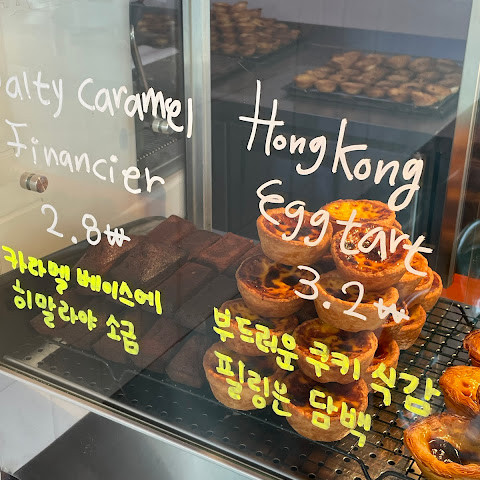 alty Caramel
Financier
2.8₩
카라멜 베이스에
히말라야 소금
Hongkong
Eggtart
3.2₩
부드러운 쿠키 식감
필링은 담백